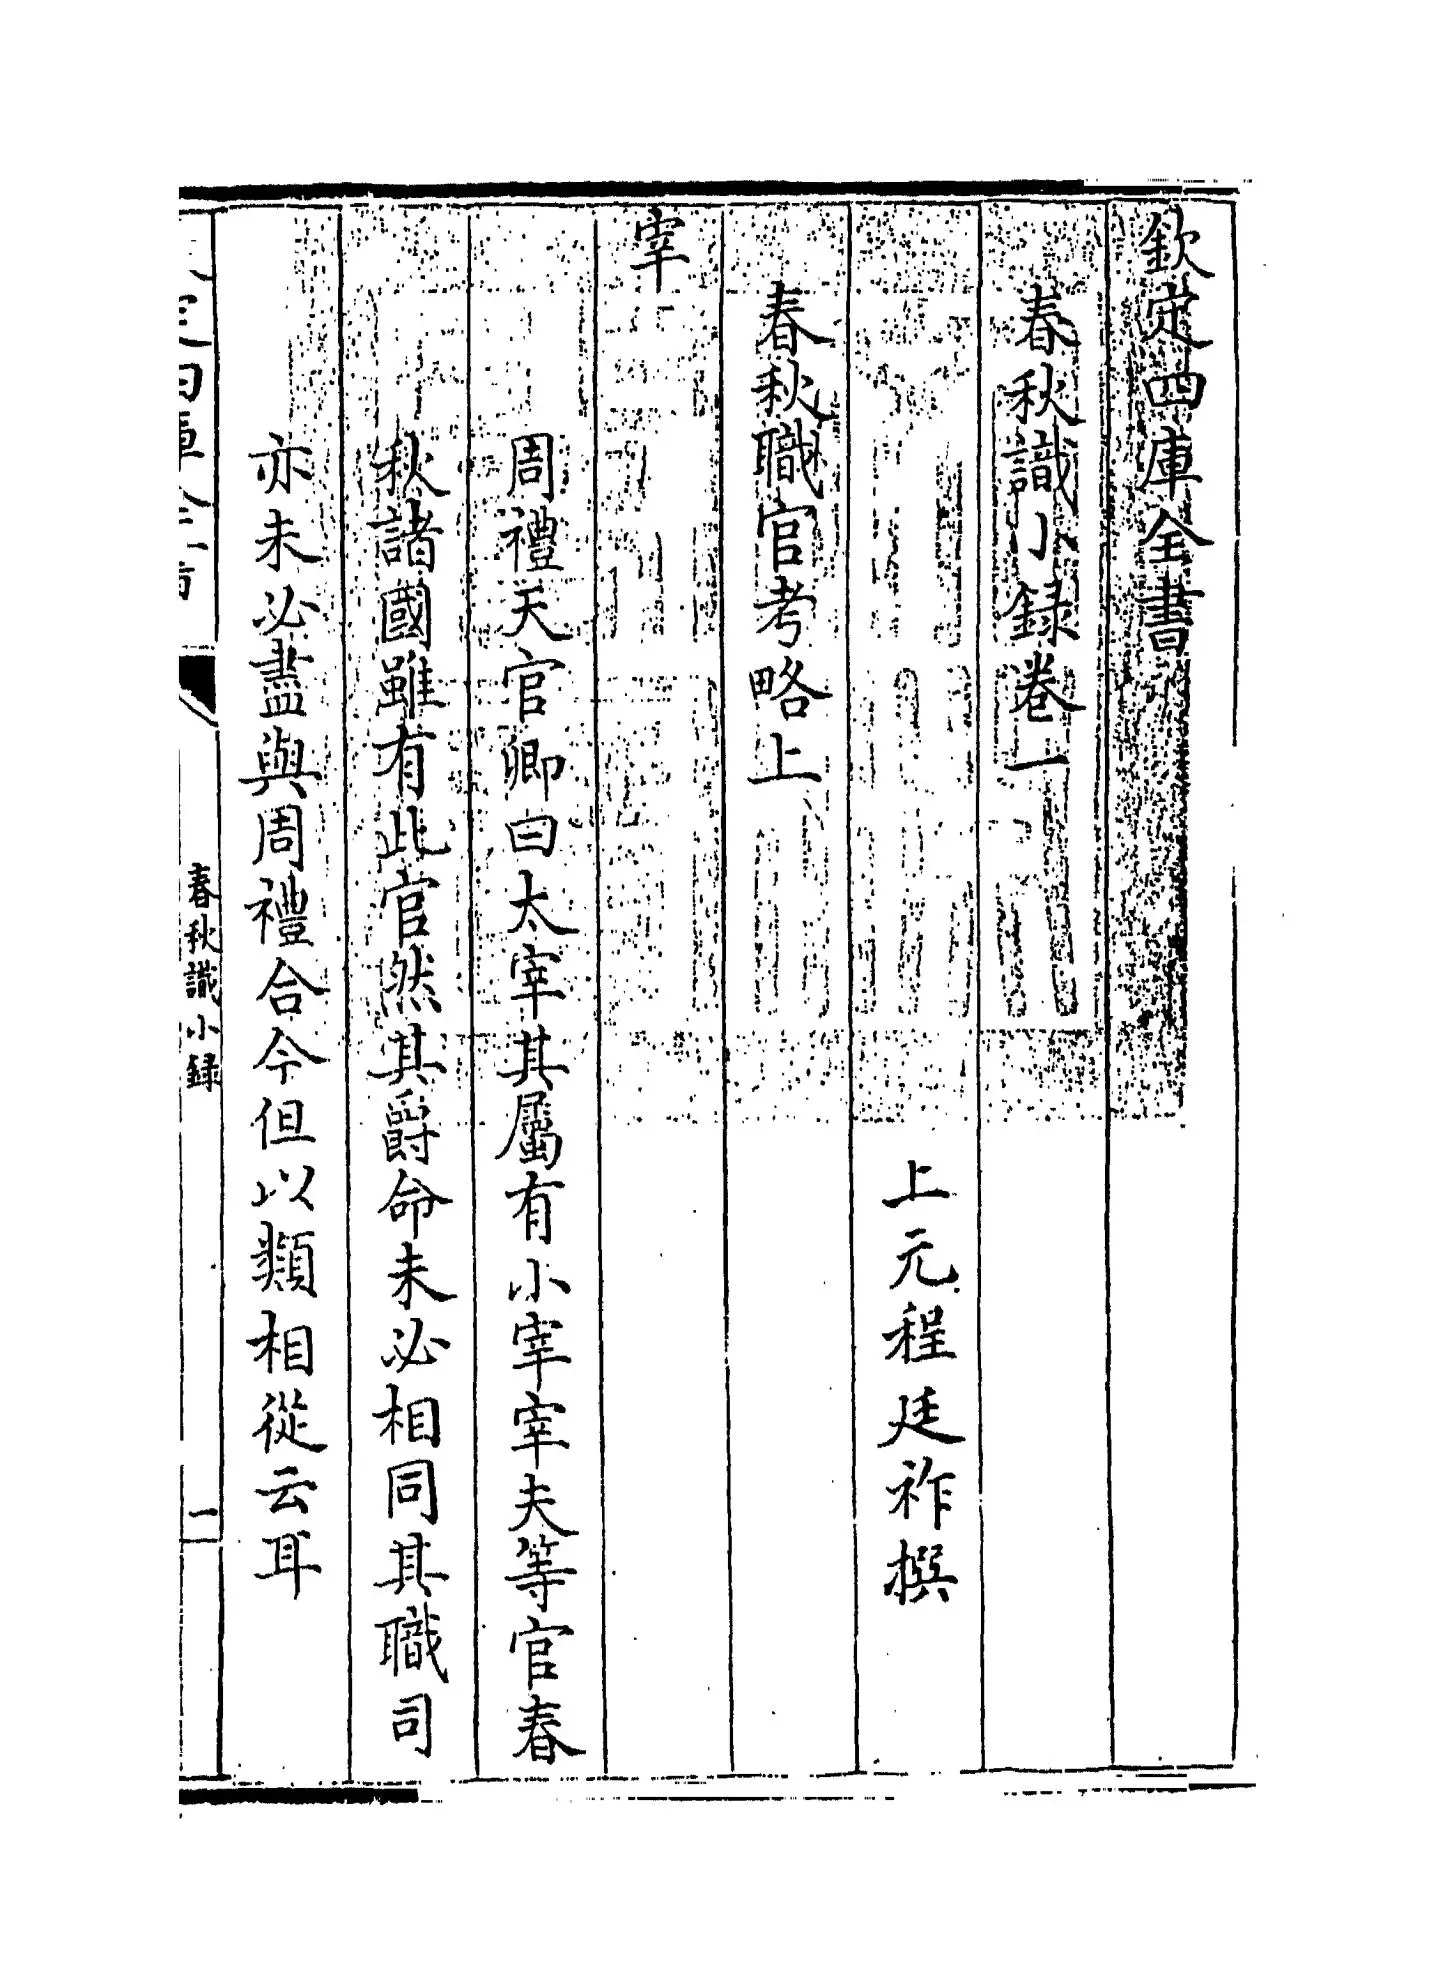 欽定四庫全書
春秋識小錄卷一
上元程廷祚撰
春秋職官考略上
宰
周禮天官卿曰太宰其屬有小宰宰夫等官春
秋諸國雖有此官然其爵命未必相同其職司
亦未必盡與周禮合今但以類相從云耳
春秋識小錄